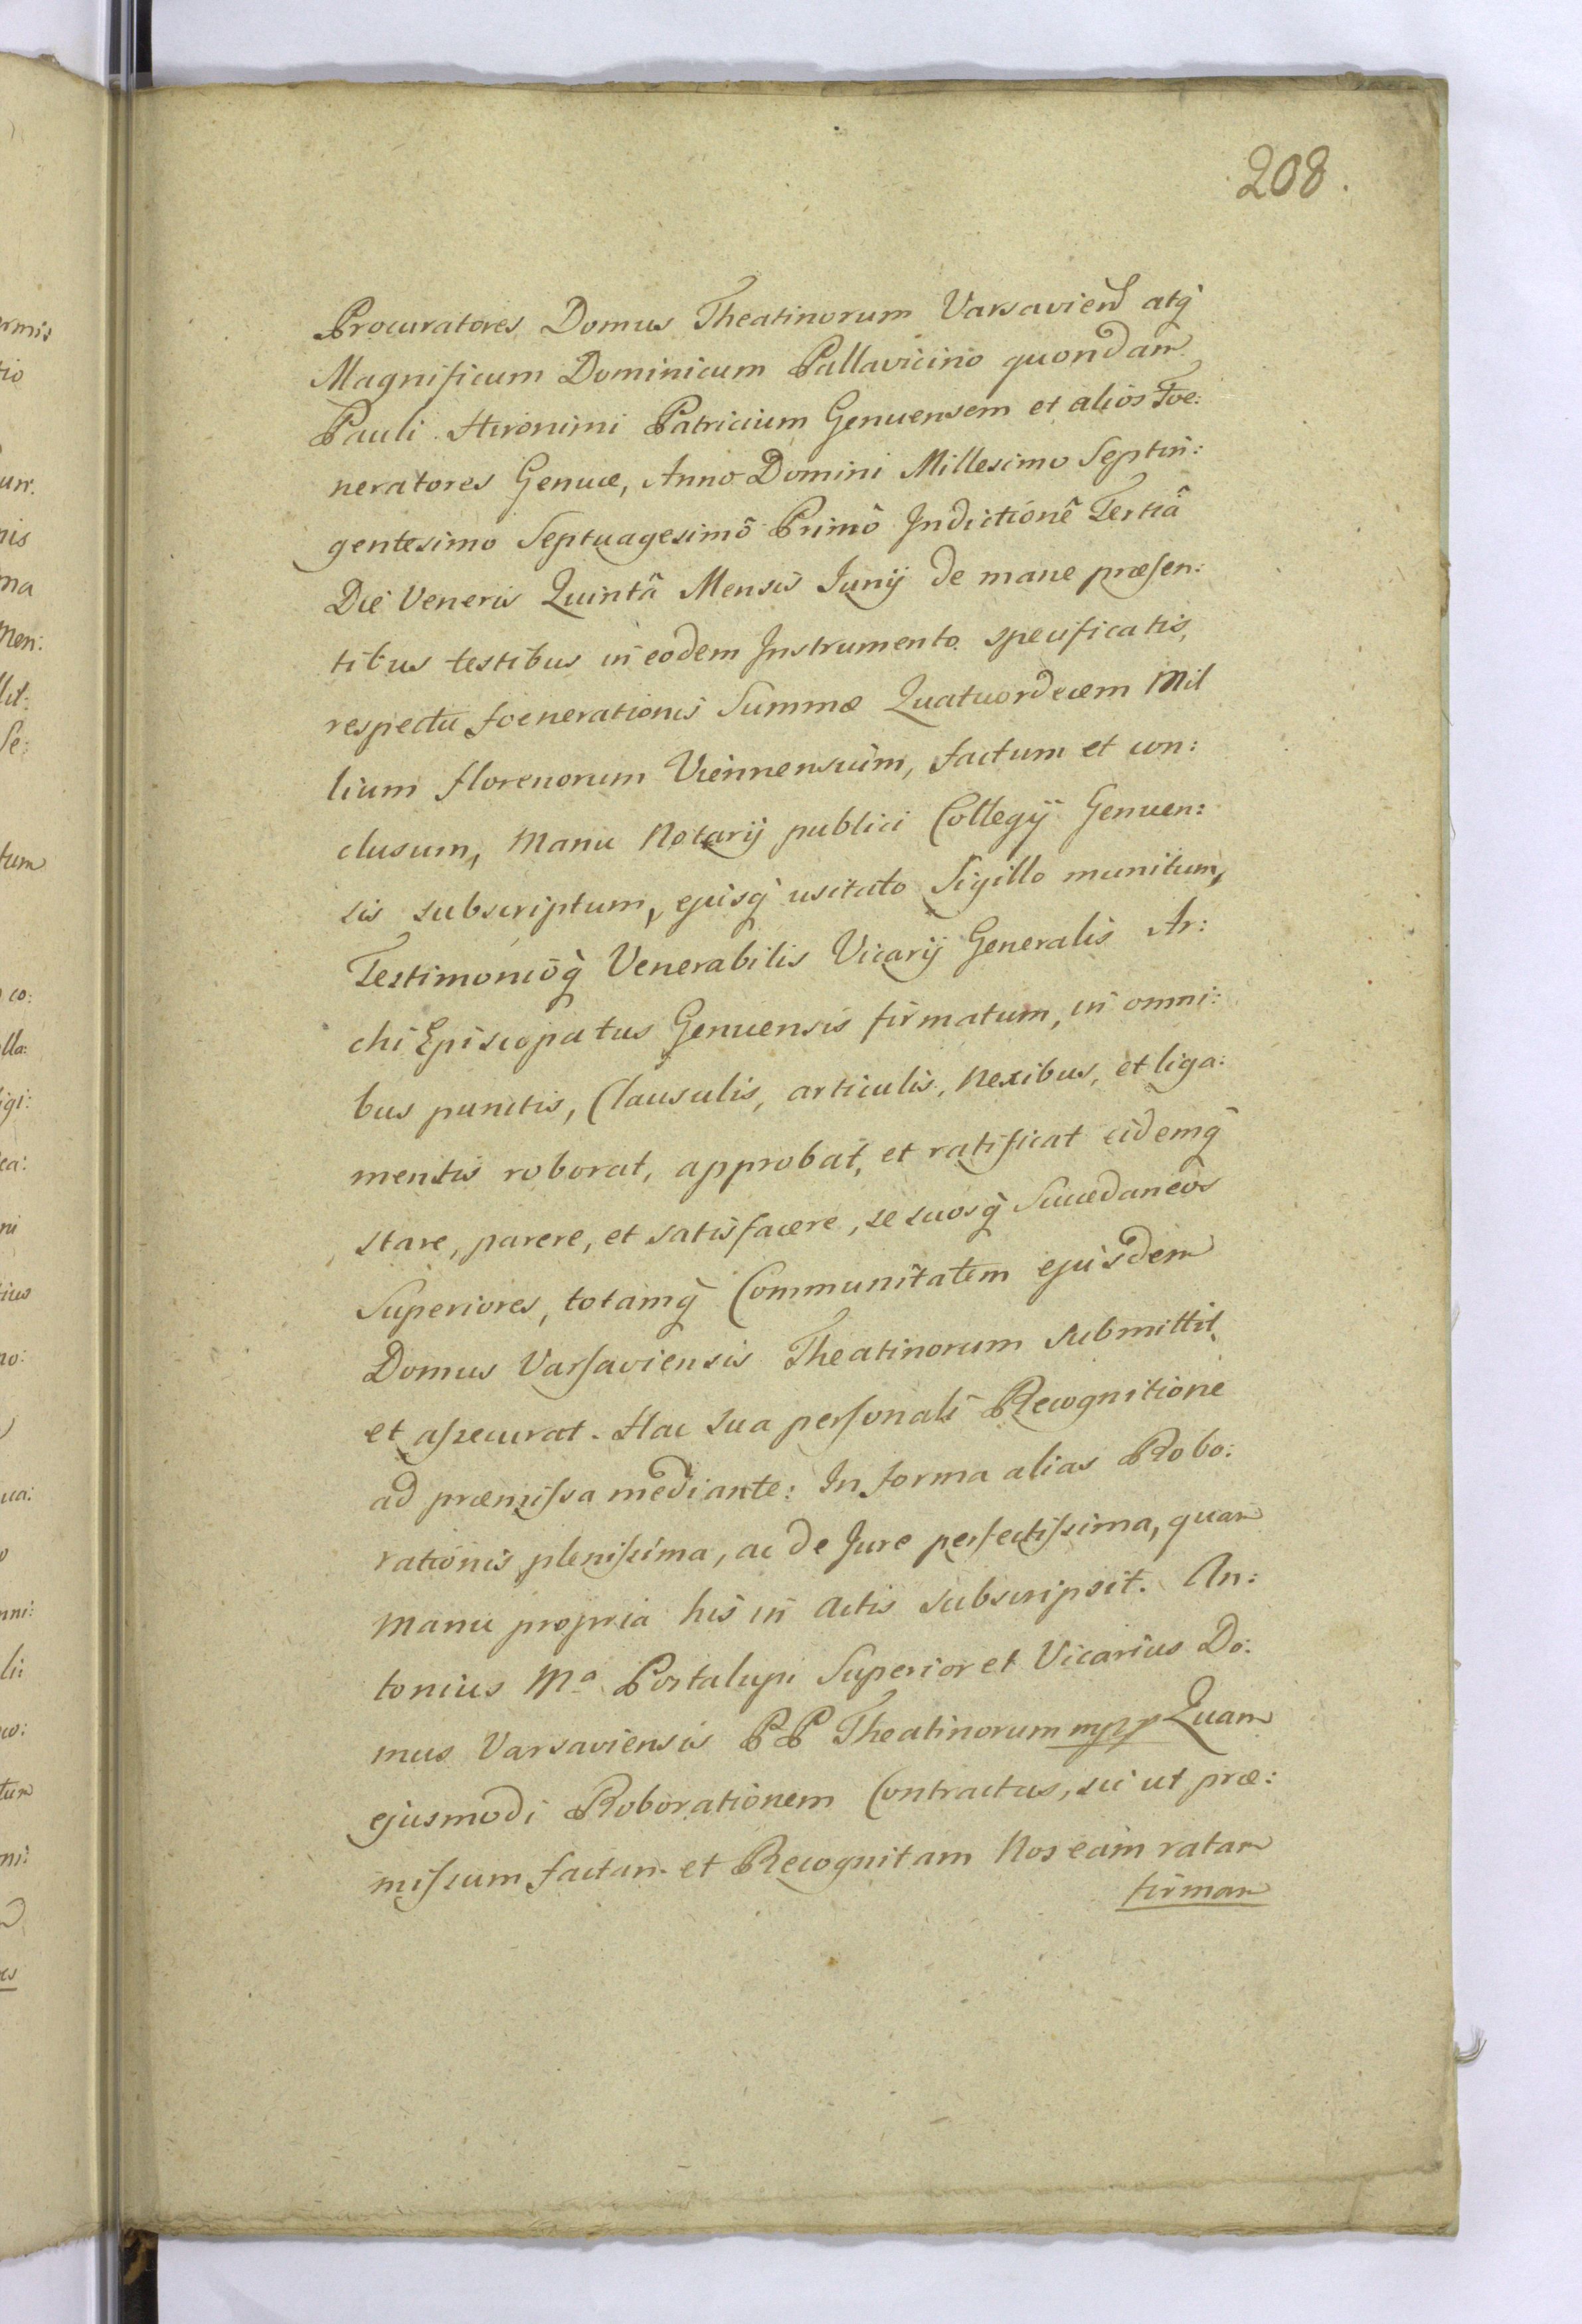 208.
Procuratores Domus Theatinorum Varsavien̄ atq̀
Magnificum Dominicum Pallavicino quondam
Pauli Hironimi Patricium Genuensem et alios Foe:
neratores Genuæ, Anno Domini Millesimo Septin:
gentesimo Septuagesimô Primô Indictionê Tertiâ
Die Veneris Quintâ Mensis Junÿ de mane præſen:
tibus testibus in eodem Instrumento specificatis,
respectu foenerationis Summæ Quatuordecem Mil
lium florenorum Viennensium, factum et con:
clusum, Manu Notarÿ publici Collegÿ Genuen:
sis subscriptum, ejusq̀ usitato Sigillo munitum,
Testimoniôq̀ Venerabilis Vicarÿ Generalis Ar:
chi Episcopatus Genuensis firmatum, in omni:
bus punctis, Clausulis, articulis, Nexibus, et liga:
mentis roborat, approbat, et ratificat eidemq̀
stare, parere, et satisfacere, se suosq̀ Succedaneos
Superiores, totamq̀ Communitatem ejusdem
Domus Varſaviensis Theatinorum submittit
et aſsecurat. Hac sua perſonali Recognitione
ad præmiſsa mediante: In forma alias Robo:
rationis pleniſsima, ac de Jure perfectiſsima, quam
Manu propria his in Actis subscripsit. An:
tonius Mᵃ Portalupi Superior et Vicarius Do:
mus Varsaviensis PP Theatinorum mpp Quam
ejusmodi Roborationem Contractus, sic ut præ:
miſsum factam et Recognitam Nos eam ratam
firmam